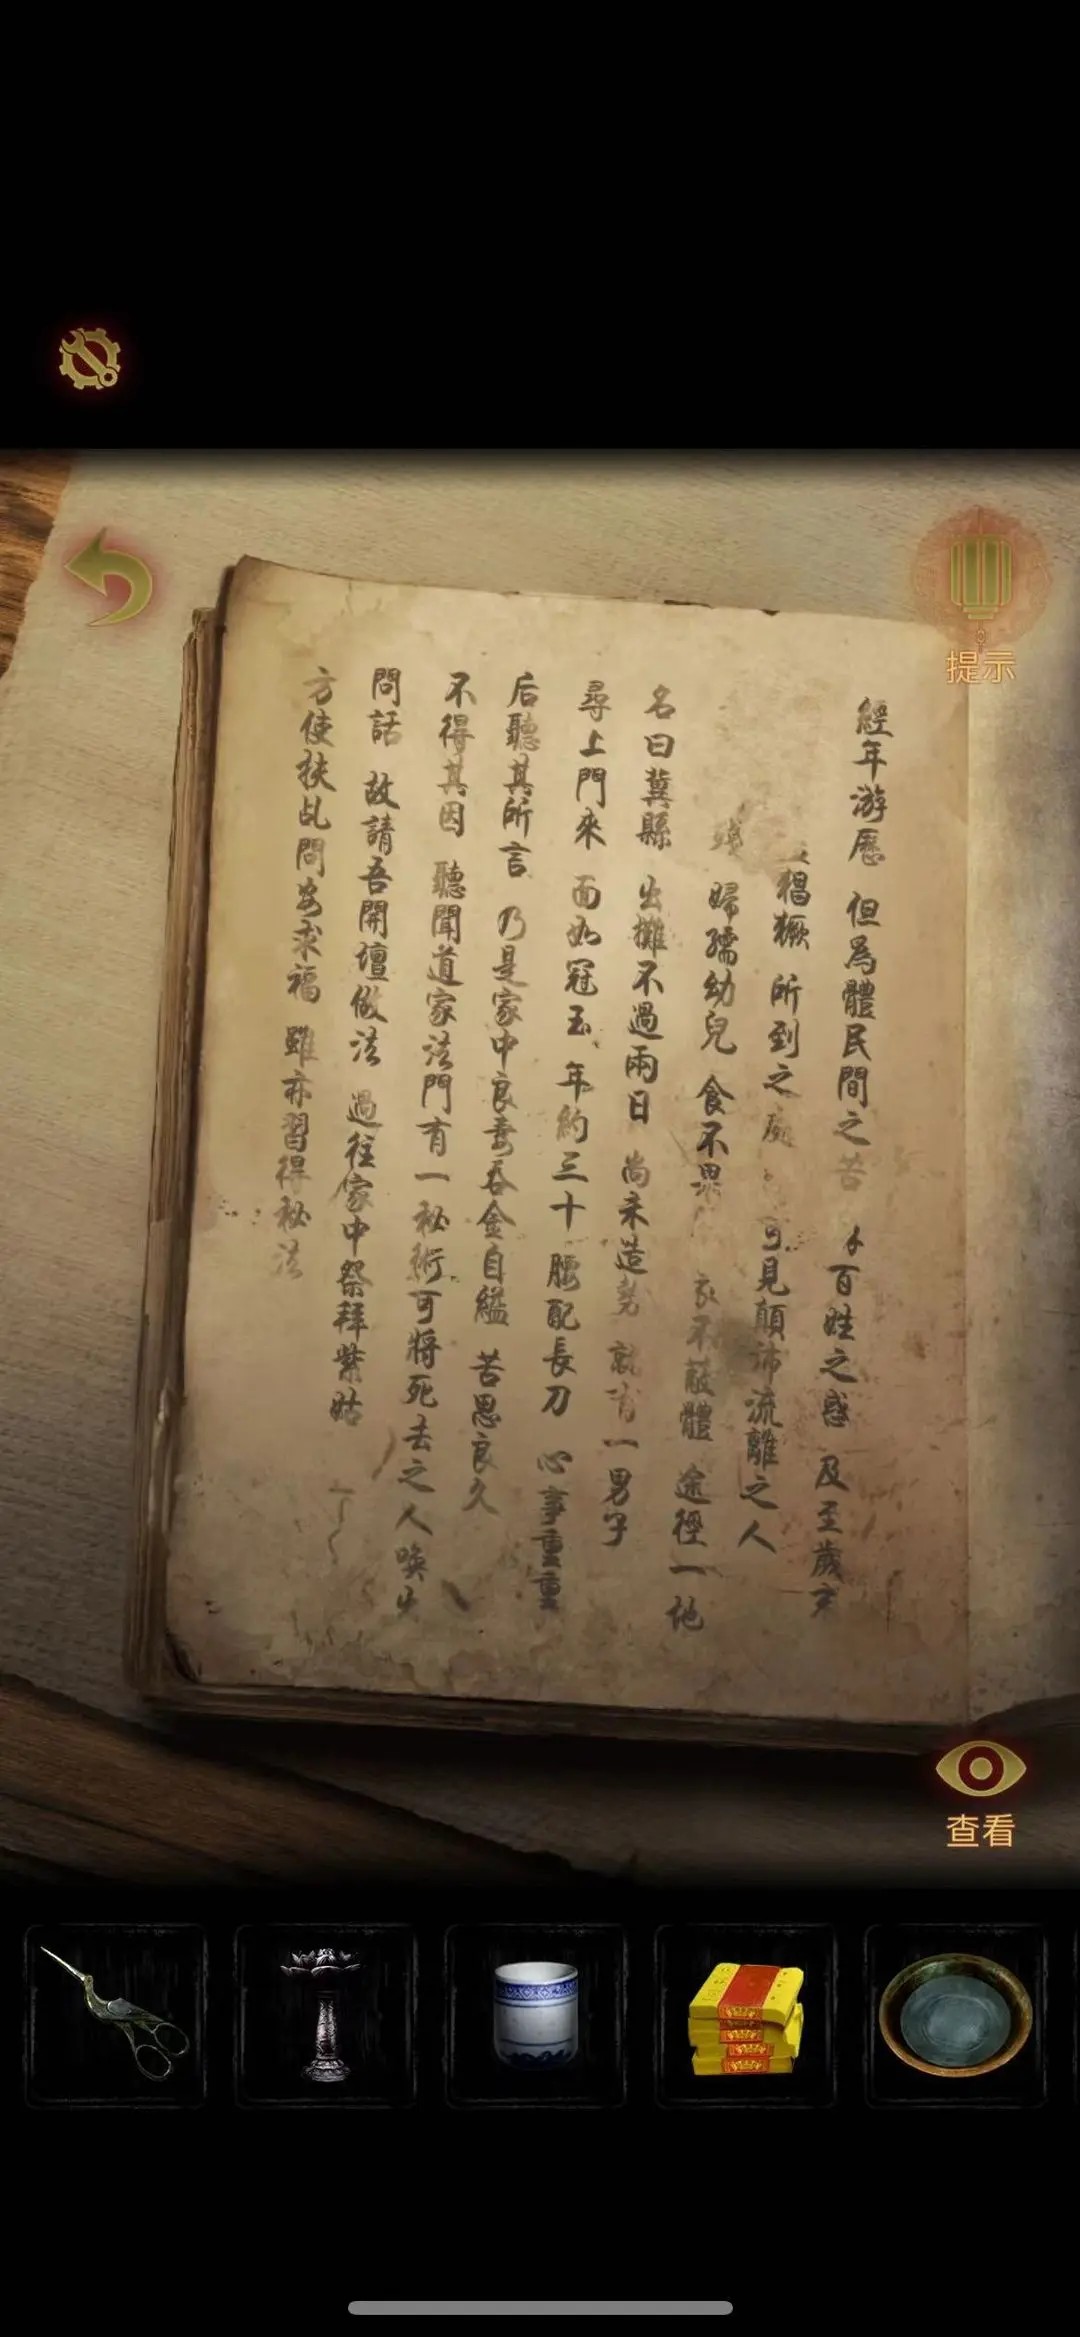 提示
經年游歷 但為體民間之苦 百姓之惑 及至歲
猖獗 所到之處 可見顛沛流離之人
婦孺幼兒 食不果 衣不蔽體 途徑一地
名曰冀縣 出攤不過兩日 尚未造勢 就有一男子
尋上門來 面如冠玉 年約三十 腰配長刀 心事重重
后聽其所言 乃是家中良妻吞金自縊 苦思良久
不得其因 聽聞道家法門有一秘術可將死去之人喚
問話 故請吾開壇做法 過往家中祭拜紫姑
方使扶乩問安求福 雖亦習得秘法
查看